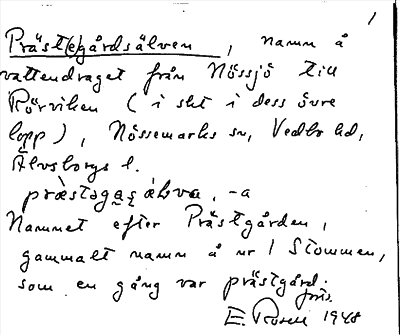 1
Präst(e)gårdsälven, namn å
vattendraget från Nössjö till
Rörviken (i sht i dess övre
lopp), Nössemarks sn, Vedbo hd,
Älvsborgs l.
-a
Namnet efter Prästgården,
gammalt namn å nr 1 Stommen,
som en gång var prästgård.
E. Rosell 1948